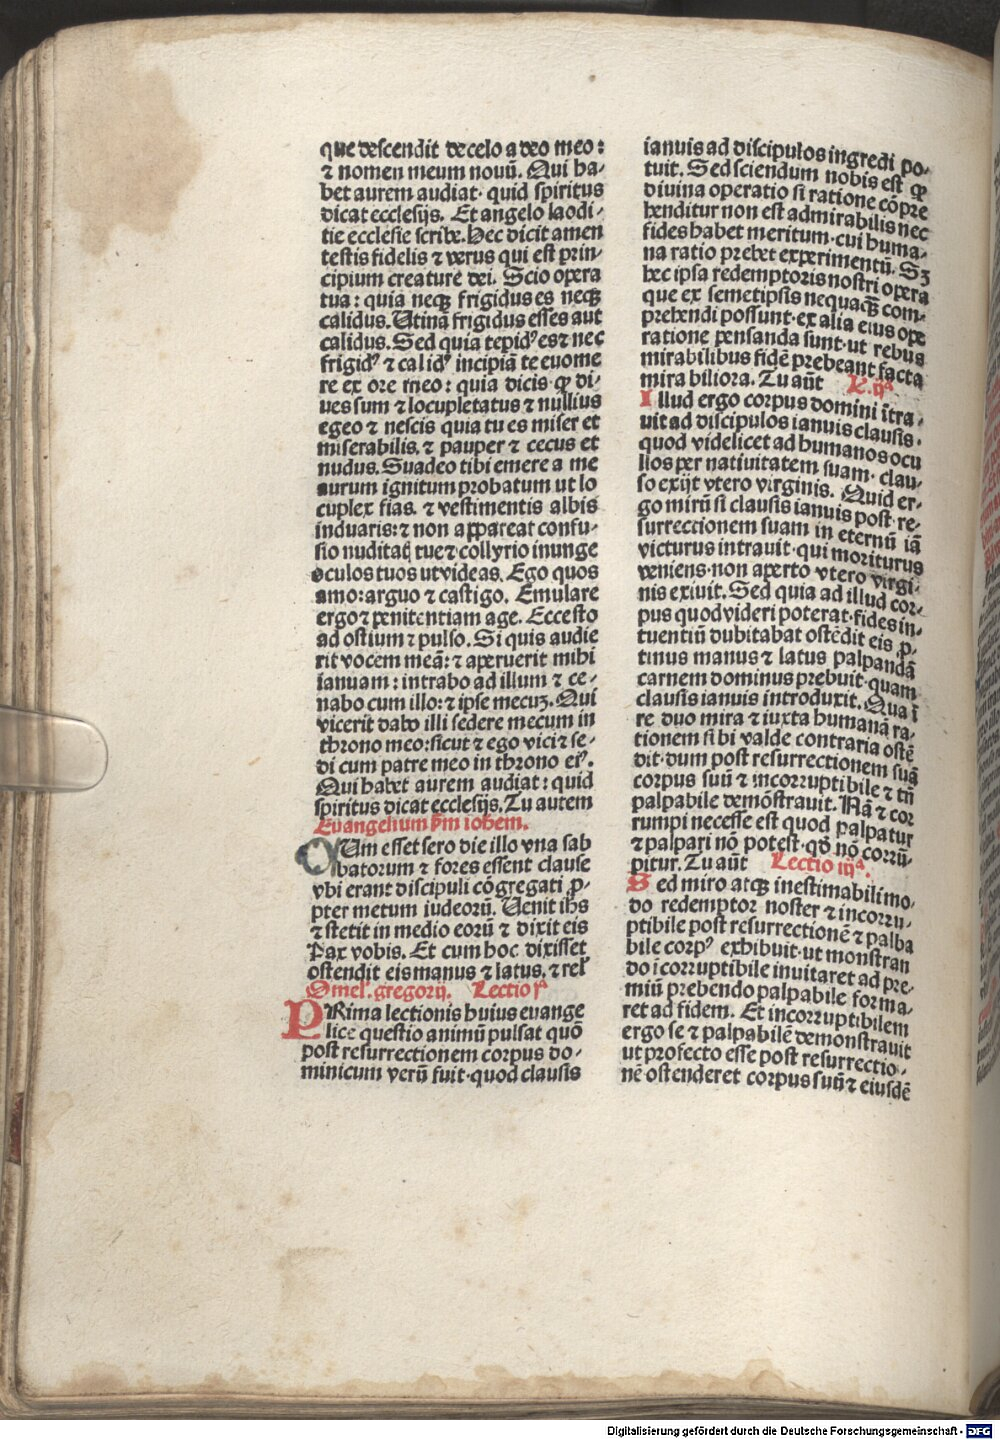 que descendit de celo a deo meo:
⁊ nomen meum nouū. Qui ha-
bet aurem audiat· quid spiritus
dicat ecclesijs. Et angelo laodi-
tie ecclesie scribe. Hec dicit amen
testis fidelis ⁊ verus qui est prin-
cipium creature dei. Scio opera
tua: quia neqꝫ frigidus es neqꝫ
calidus. Utinā frigidus esses aut
calidus. Sed quia tepidꝰ es ⁊ nec
frigidꝰ ⁊ calidꝰ incipiā te euome
re ex ore meo: quia dicis ꝙ di-
ues sum ⁊ locupletatus ⁊ nullius
egeo ⁊ nescis quia tu es miser et
miserabilis. ⁊ pauper ⁊ cecus et
nudus. Suadeo tibi emere a me
aurum ignitum probatum ut lo
cuplex fias. ⁊ vestimentis albis
induaris: ⁊ non appareat confu-
sio nuditatꝭ tue ⁊ collyrio inunge
oculos tuos ut videas. Ego quos
amo: arguo ⁊ castigo. Emulare
ergo ⁊ penitentiam age. Ecce sto
ad ostium ⁊ pulso. Si quis audie
rit vocem meā: ⁊ aperuerit mihi
ianuam: intrabo ad illum ⁊ ce-
nabo cum illo: ⁊ ipse mecuꝫ. Qui
vicerit dabo illi sedere mecum in
throno meo: sicut ⁊ ego vici ⁊ se-
di cum patre meo in throno eiꝰ.
Qui habet aurem audiat: quid
spiritus dicat ecclesijs. Tu autem
Euangelium scďm iohem.
CUm esset sero die illo vna sab
batorum ⁊ fores essent clause
vbi erant discipuli cōgregati ꝓ-
pter metum iudeorū. Uenit ihs
⁊ stetit in medio eorū ⁊ dixit eis
Pax vobis. Et cum hoc dixisset
ostendit eis manus ⁊ latus. ⁊ rel̓
Omel̓. gregorij. Lectio jᵃ
PRima lectionis huius euange
lice questio animū pulsat quō
post resurrectionem corpus do-
minicum verū fuit· quod clausis
ianuis ad discipulos ingredi po-
tuit. Sed sciendum nobis est ꝙ
diuina operatio si ratione cōpre
henditur non est admirabilis nec
fides habet meritum· cui huma-
na ratio prebet experimentū. Sꝫ
hec ipsa redemptoris nostri opera
que ex semetipsis nequaqꝫ com-
prehendi possunt· ex alia eius ope
ratione pensanda sunt· ut rebus
mirabilibus fidē prebeant facta
mirabiliora. Tu aūt L. ijᵃ
Illud ergo corpus domini ītra-
uit ad discipulos ianuis clausis·
quod videlicet ad humanos ocu
los per natiuitatem suam· clau-
so exijt vtero virginis. Quid er-
go mirū si clausis ianuis post re-
surrectionem suam in eternū iā
victurus intrauit· qui moriturus
veniens· non aperto vtero virgi-
nis exiuit. Sed quia ad illud cor-
pus quod videri poterat· fides in-
tuentiū dubitabat ostēdit eis ꝓ-
tinus manus ⁊ latus palpandā
carnem dominus prebuit· quam
clausis ianuis introduxit. Qua ī
re duo mira ⁊ iuxta humanā ra-
tionem sibi valde contraria ostē
dit· dum post resurrectionem suā
corpus suū ⁊ incorruptibile ⁊ tn̄
palpabile demōstrauit. Nā ⁊ cor
rumpi necesse est quod palpatur
⁊ palpari nō potest· qđ nō corrū-
pitur. Tu aūt Lectio iijᵃ.
Sed miro atqꝫ inestimabili mo-
do redemptor noster ⁊ incorru-
ptibile post resurrectionē ⁊ palba
bile corpꝰ exhibuit· ut monstran
do īcorruptibile inuitaret ad pre-
miū ⁊ prebendo palpabile forma-
ret ad fidem. Et incorruptibilem
ergo se ⁊ palpabilē demonstrauit
ut profecto esse post resurrectio-
nē ostenderet corpus suū ⁊ eiusdē
Digitalisierung gefördert durch die Deutsche Forschungsgemeinschaft - DFG